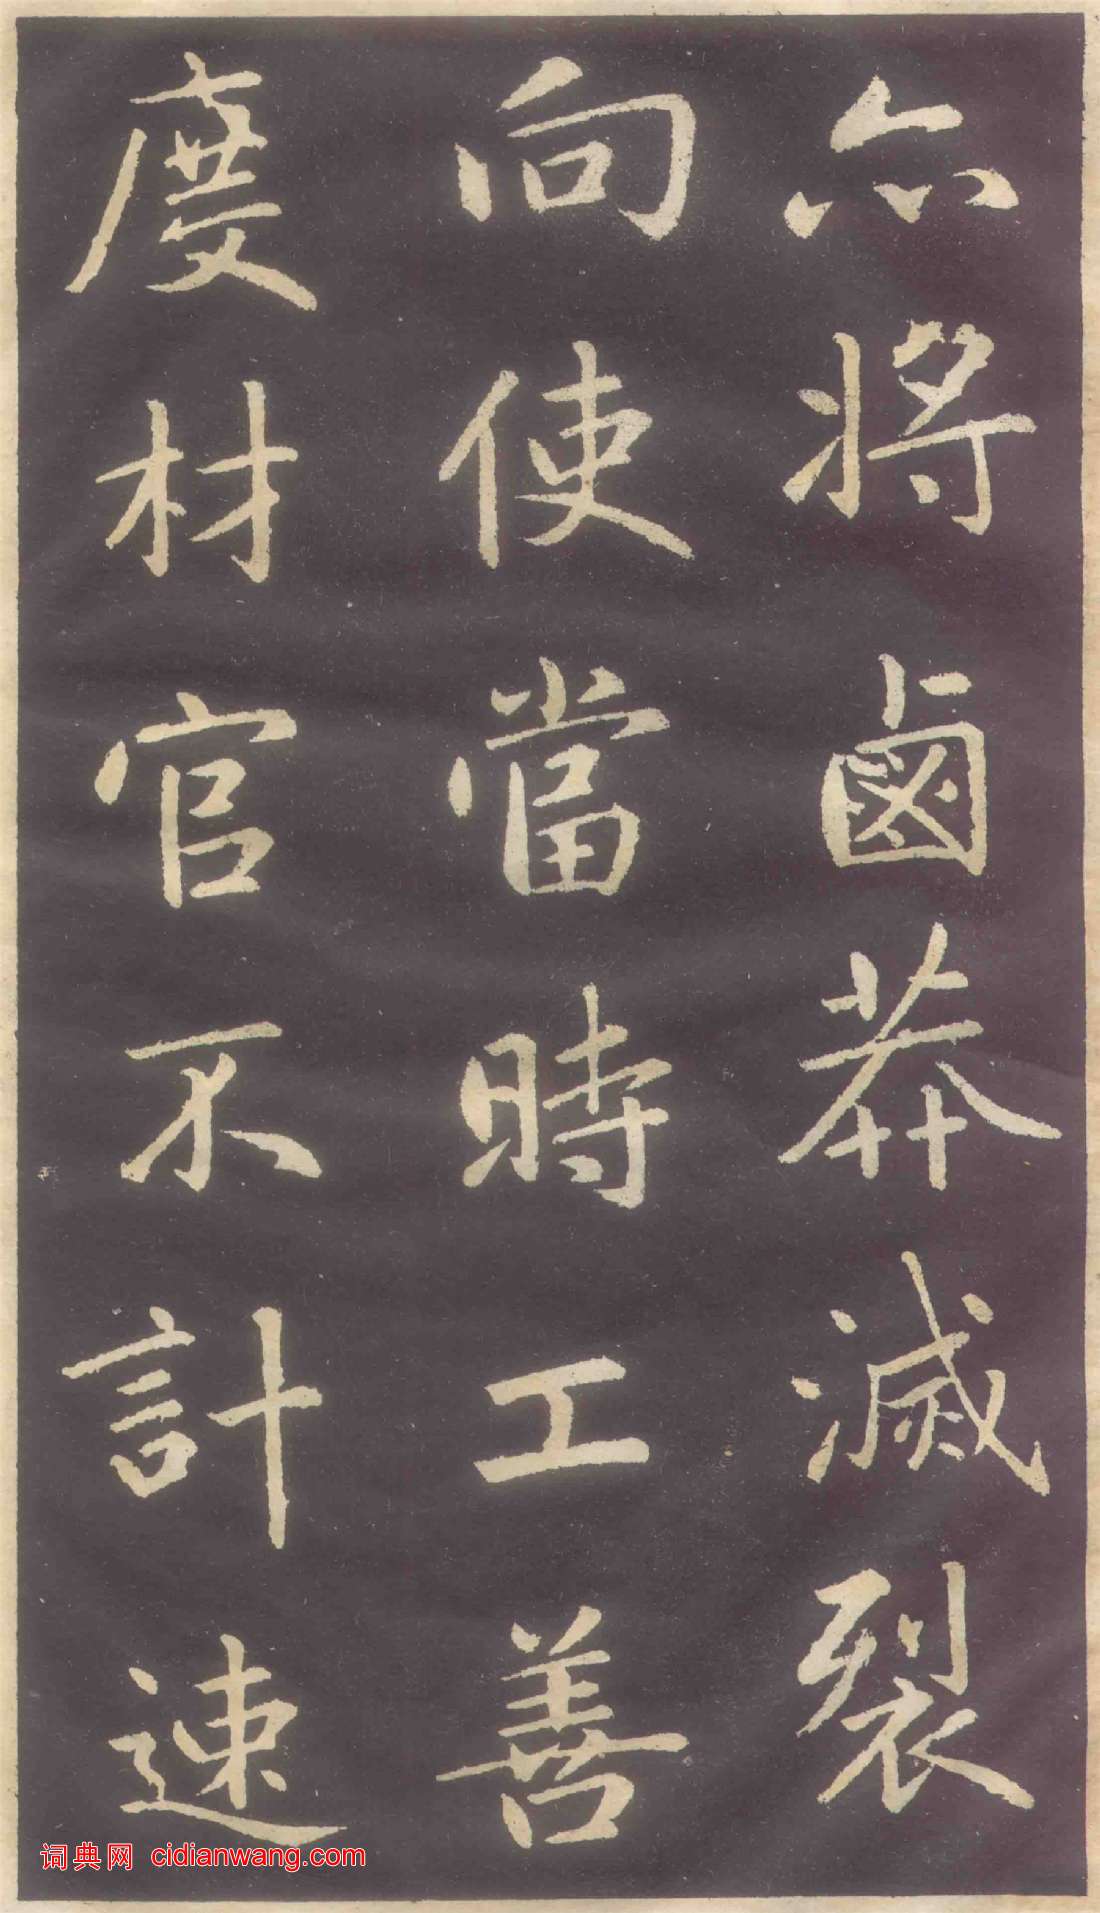 亦將鹵莽滅裂
向使當時工善
度材官不計速
词典网 cidianwang.com